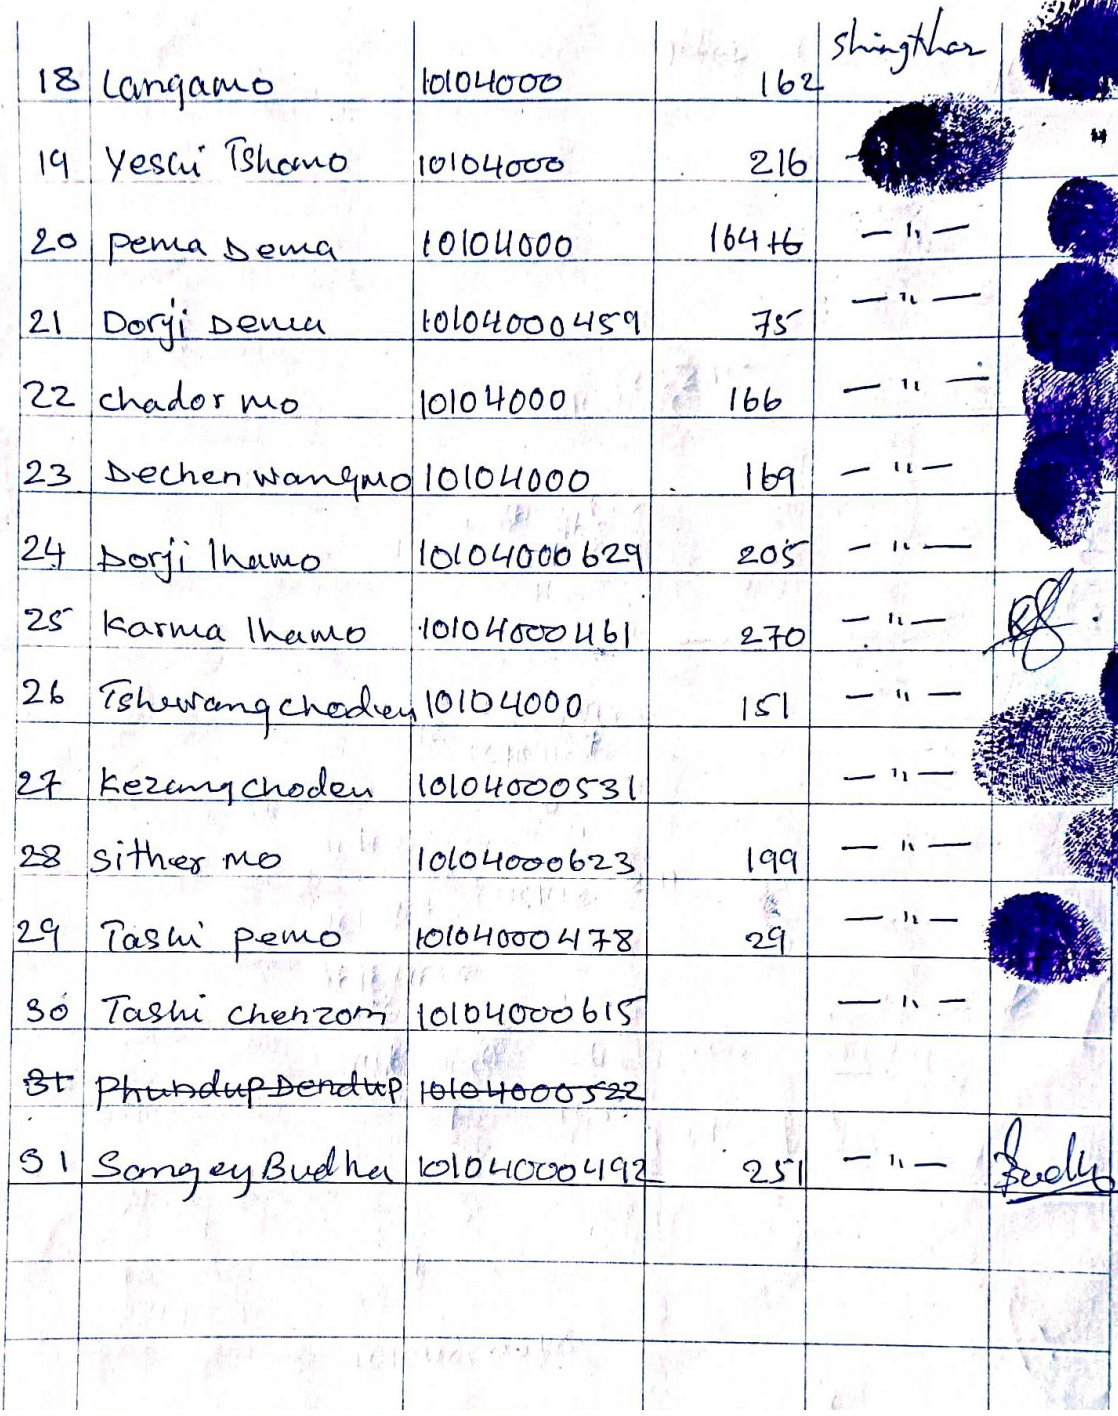 18 Langamo 10104000 162 Shingthar
19 Yeshi Tshomo 10104000 216 "
20 Pema Dema 10104000 164 — " —
21 Dorji Dema 10104000459 75 — " —
22 chador mo 10104000 166 — " —
23 Dechen wangmo 10104000 169 — " —
24 Dorji lhamo 10104000629 205 — " —
25 Karma lhamo 10104000461 270 — " —
26 Tshewang choden 10104000 151 — " —
27 Kezang choden 10104000531 — " —
28 Sither mo 10104000623 199 — " —
29 Tashi pemo 10104000478 29 — " —
30 Tashi chenzom 10104000615 — " —
31 Phundup Dendup 10104000522
31 Sangey Budha 10104000492 251 — " —